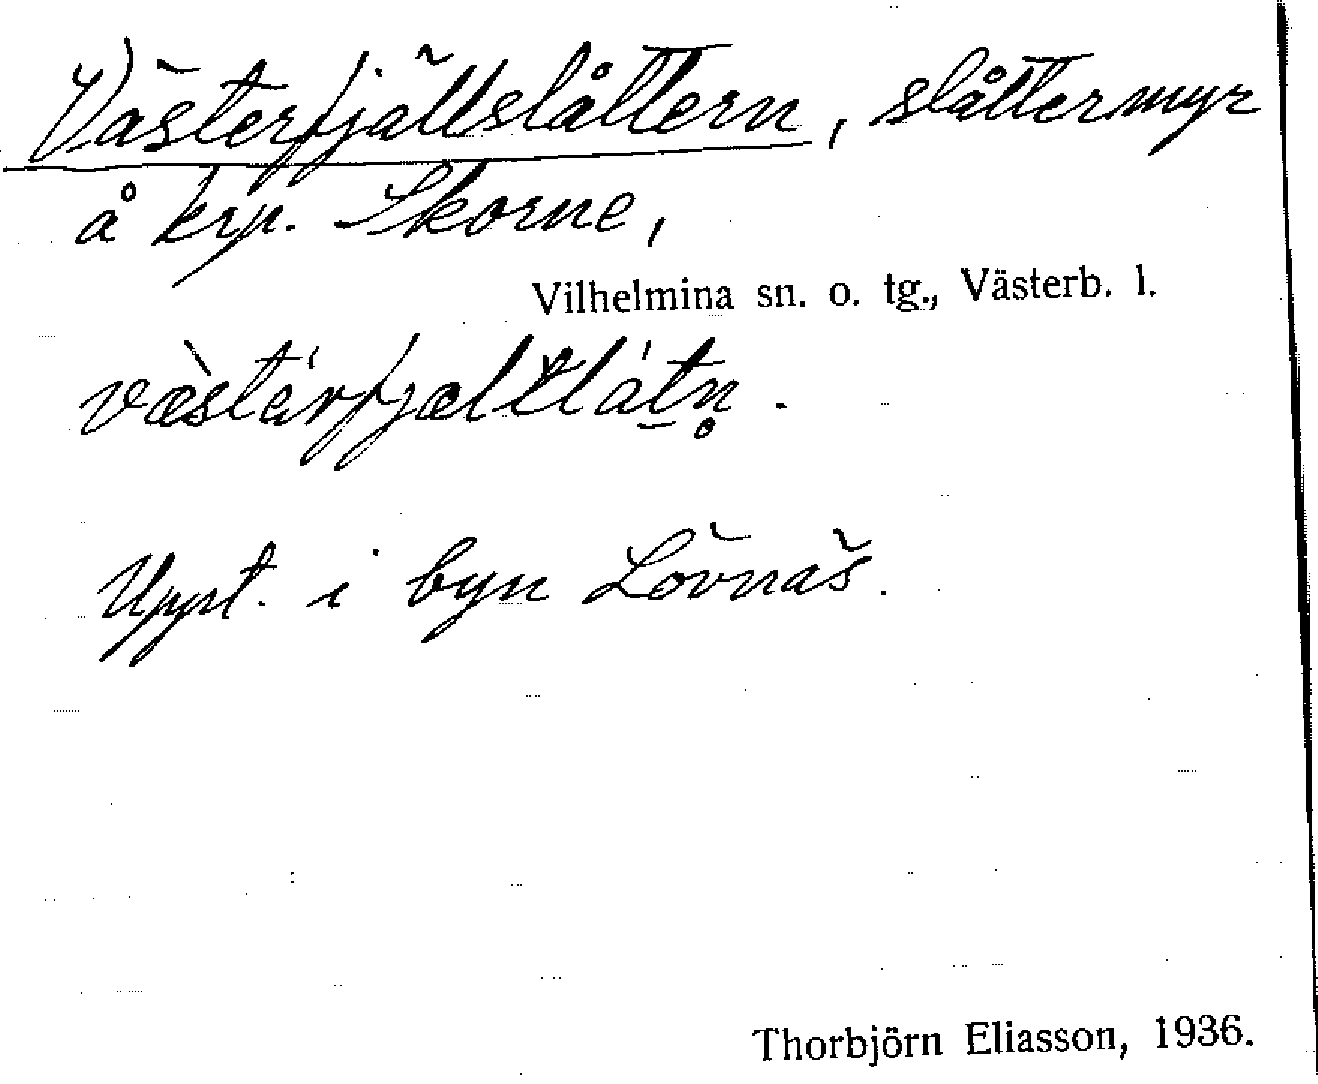 Västerfjällslåttern, slåttermyr
å krp. Skorne,
Vilhelmina sn. o. tg., Västerb. l.
Uppt. i byn Lövnäs.
Thorbjörn Eliasson, 1936.